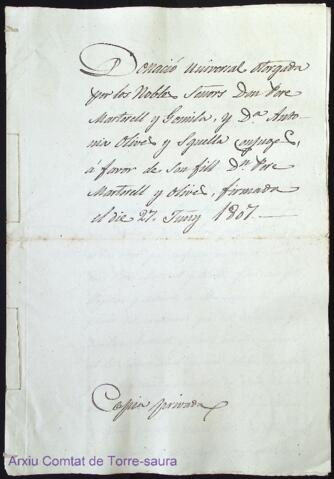 Donació Universal otorgada
per los Nobles Señors Don Pere
Martorell y Gomila, y Dª. Anto-
nia Olives y Squella conjuges,
á favor de son fill Dn. Pere
Martorell y Olives, firmada
el die 27. Juny 1807.
Copia privada
Arxiu Comtat de Torre-saura